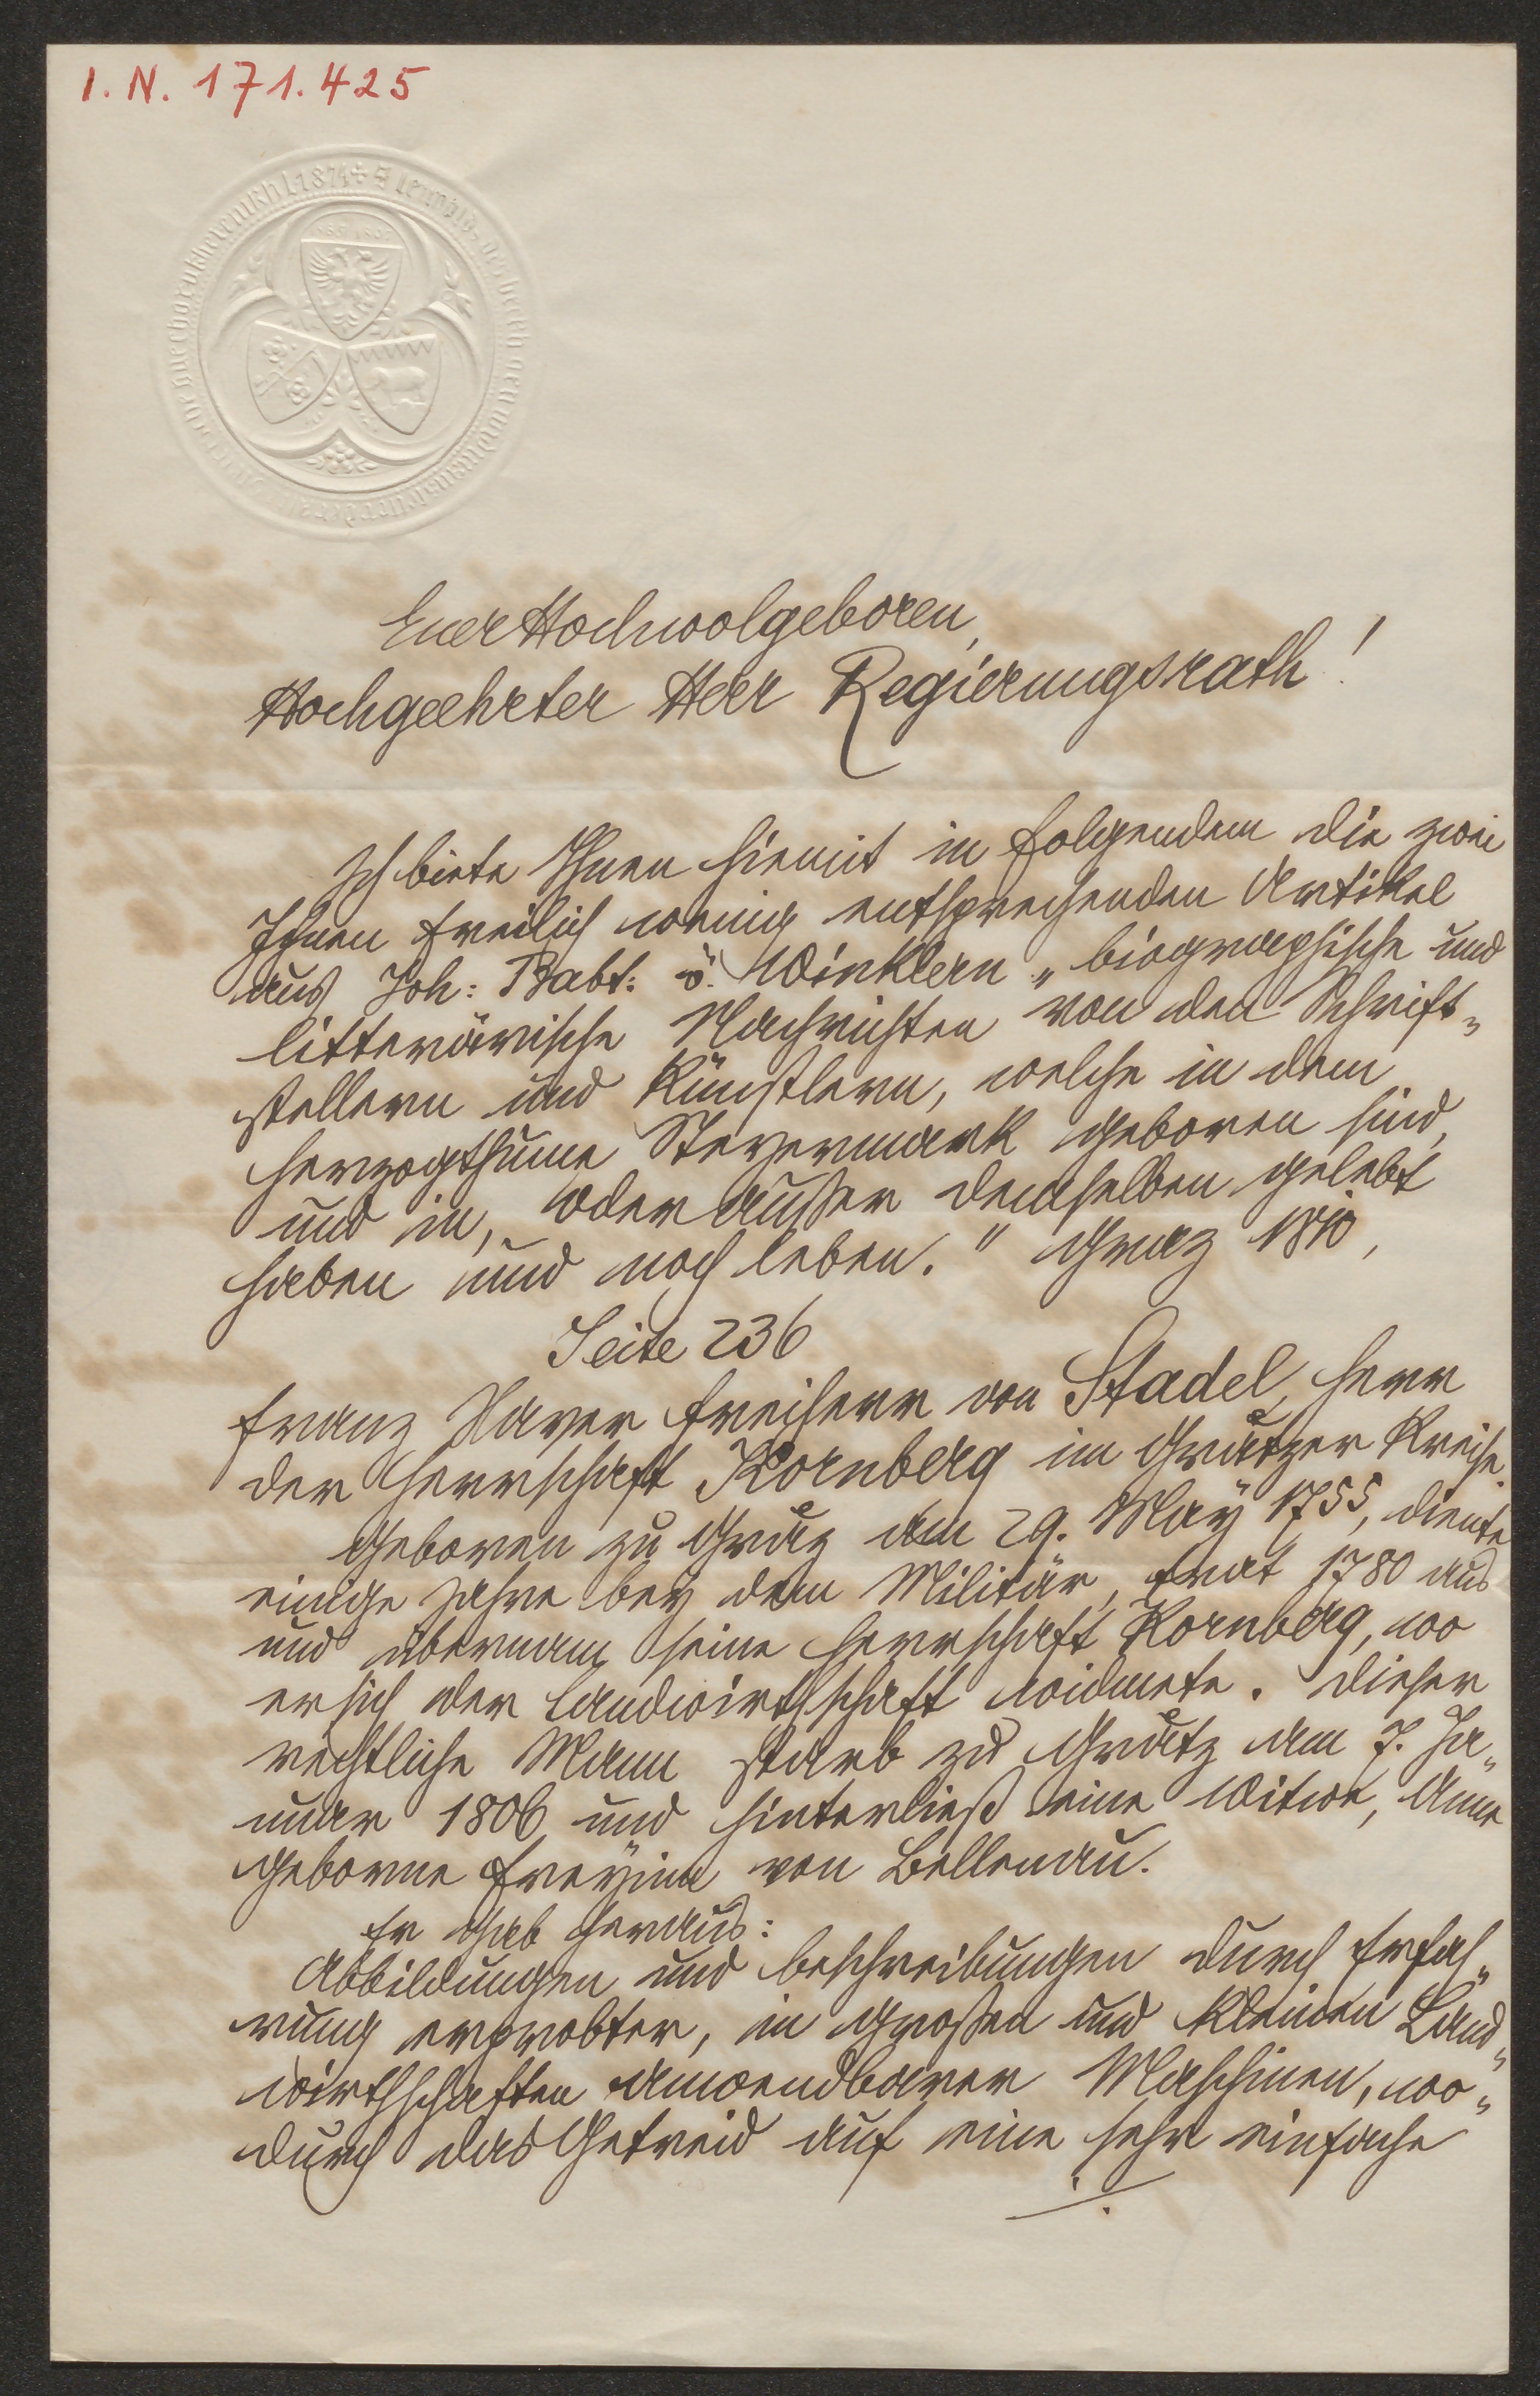 I. N. 171.425
Euer Hochwolgeboren,
Hochgeehrter Herr Regierungsrath!
Ich biete Ihnen hiemit in folgendem die zwei
Ihnen freilich wenig entsprechenden Artikel
aus Joh: Babt: v. Winklern „biographische und
litterärische Nachrichten von den Schrift„
stellern und Künstlern, welche in dem
Herzogthume Steyermark geboren sind,
und in, oder außer demselben gelebt
haben und noch leben." Graz 1810,
Seite 236
Franz Xaver Freiherr von Stadel, Herr
der Herrschaft Kornberg im Graͤtzer Kreise.
Geboren zu Graͤz am 29. May 1755, diente
einige Jahre bey dem Militär, trat 1780 aus
und übernam seine Herrschaft Kornberg, wo
er sich der Landwirthschaft widmete. Dieser
rechtliche Mann starb zu Graͤtz am 7. Ja„
nuar 1806 und hinterließ eine Witwe, Anna
geborne Freyinn von Bellenau.
Er gab heraus:
Abbildungen und Beschreibungen durch Erfah„
rung erprobter, in großen und kleinen Land„
wirthschaften anwendbarer Maschinen, wo„
durch das Getreid auf eine sehr einfache
./.